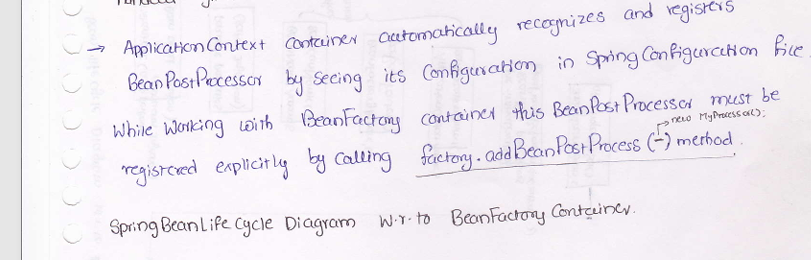 → ApplicationContext container automatically recognizes and registers
BeanPostProcessor by seeing its Configuration in Spring Configuration file.
While working with BeanFactory container this BeanPostProcessor must be
new MyProcessor();
registered explicitly by calling factory.addBeanPostProcess (-) method.
Spring Bean Life Cycle Diagram w.r.to BeanFactory Container.